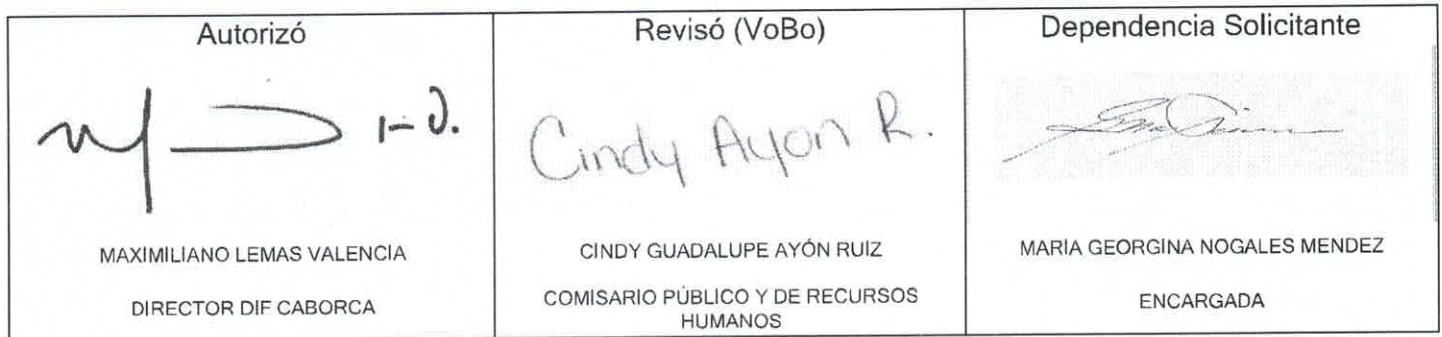 Autorizó
Revisó (VoBo)
Dependencia Solicitante
Cindy Ayon R.
MAXIMILIANO LEMAS VALENCIA
CINDY GUADALUPE AYÓN RUIZ
MARIA GEORGINA NOGALES MENDEZ
DIRECTOR DIF CABORCA
COMISARIO PÚBLICO Y DE RECURSOS
HUMANOS
ENCARGADA